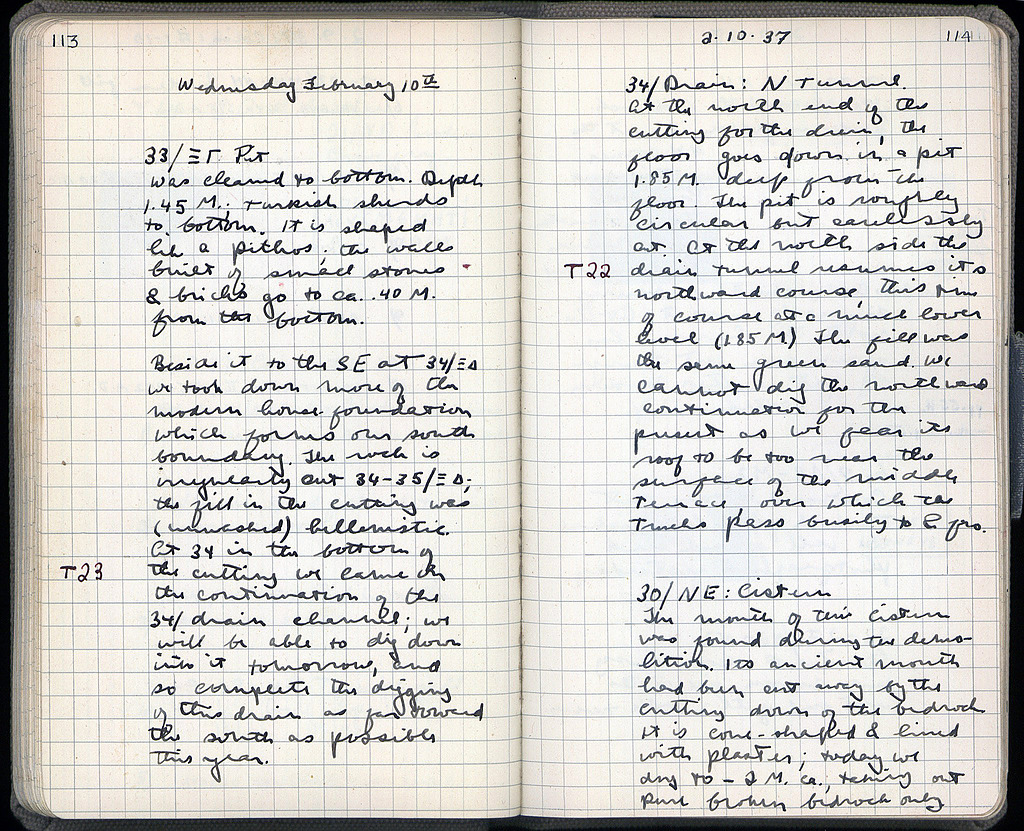 113
Wednesday February 10th
33/ΞΓ Pit
was cleared to bottom. Depth
1.45 M.; Turkish sherds
to bottom. It is shaped
like a pithos; the walls
built of small stones
& bricks go to ca. .40 M.
from the bottom.
Beside it to the SE at 34/ΞΔ
we took down more of the
modern house foundation
which forms our south
boundary. The rock is
irregularly cut 34-35/ΞΔ;
the fill in the cutting was
(unwashed) hellenistic.
At 34 in the bottom of
T23 the cutting we came on
the continuation of the
34/ drain channel; we
will be able to dig down
into it tomorrow, and
so complete the digging
of this drain as far toward
the south as possible
this year.
2·10·37
114
34/Drain: N Tunnel.
At the north end of the
cutting for the drain, the
floor goes down in a pit
1.85 M. deep from the
floor. The pit is roughly
circular but carelessly
cut. At the north side the
T22 drain tunnel resumes its
northward course, this time
of course at a much lower
level (1.85 M.) The fill was
the same green sand. We
cannot dig the northward
continuation for the
present as we fear its
roof to be too near the
surface of the middle
terrace over which the
trucks pass busily to & fro.
30/NE: Cistern
The mouth of this cistern
was found during the demo-
lition. Its ancient mouth
had been cut away by the
cutting down of the bedrock
It is cone-shaped & lined
with plaster; today we
dug to -2 M. ca., taking out
pure broken bedrock only